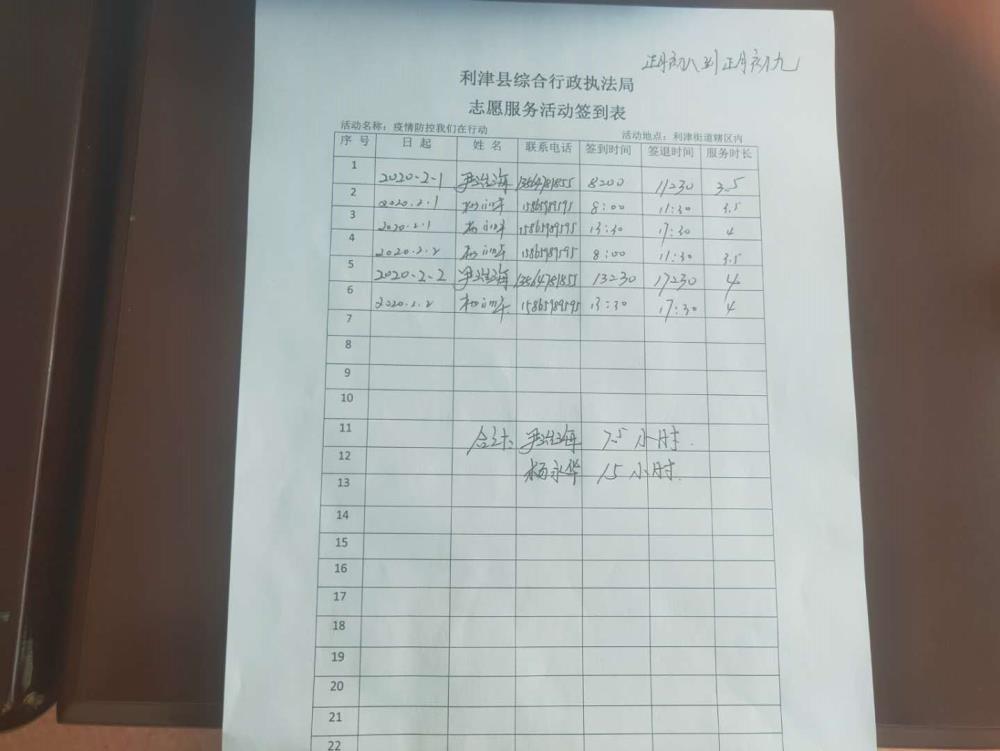 正月初八到正月初九
利津县综合行政执法局
志愿服务活动签到表
活动名称：疫情防控我们在行动 活动地点：利津街道辖区内
序号 日起 姓名 联系电话 签到时间 签退时间 服务时长
1 2020-2-1 13564781855 8:00 11:30 3.5
2 2020.2.1 15865989595 8:00 11:30 3.5
3 2020.2.1 15865989595 13:30 17:30 4
4 2020.2.2 15865989595 8:00 11:30 3.5
5 2020-2-2 13564781855 13:30 17:30 4
6 2020.2.2 15865989595 13:30 17:30 4
7
8
9
10
11 合计: 7.5 小时.
12 杨永华 15 小时.
13
14
15
16
17
18
19
20
21
22